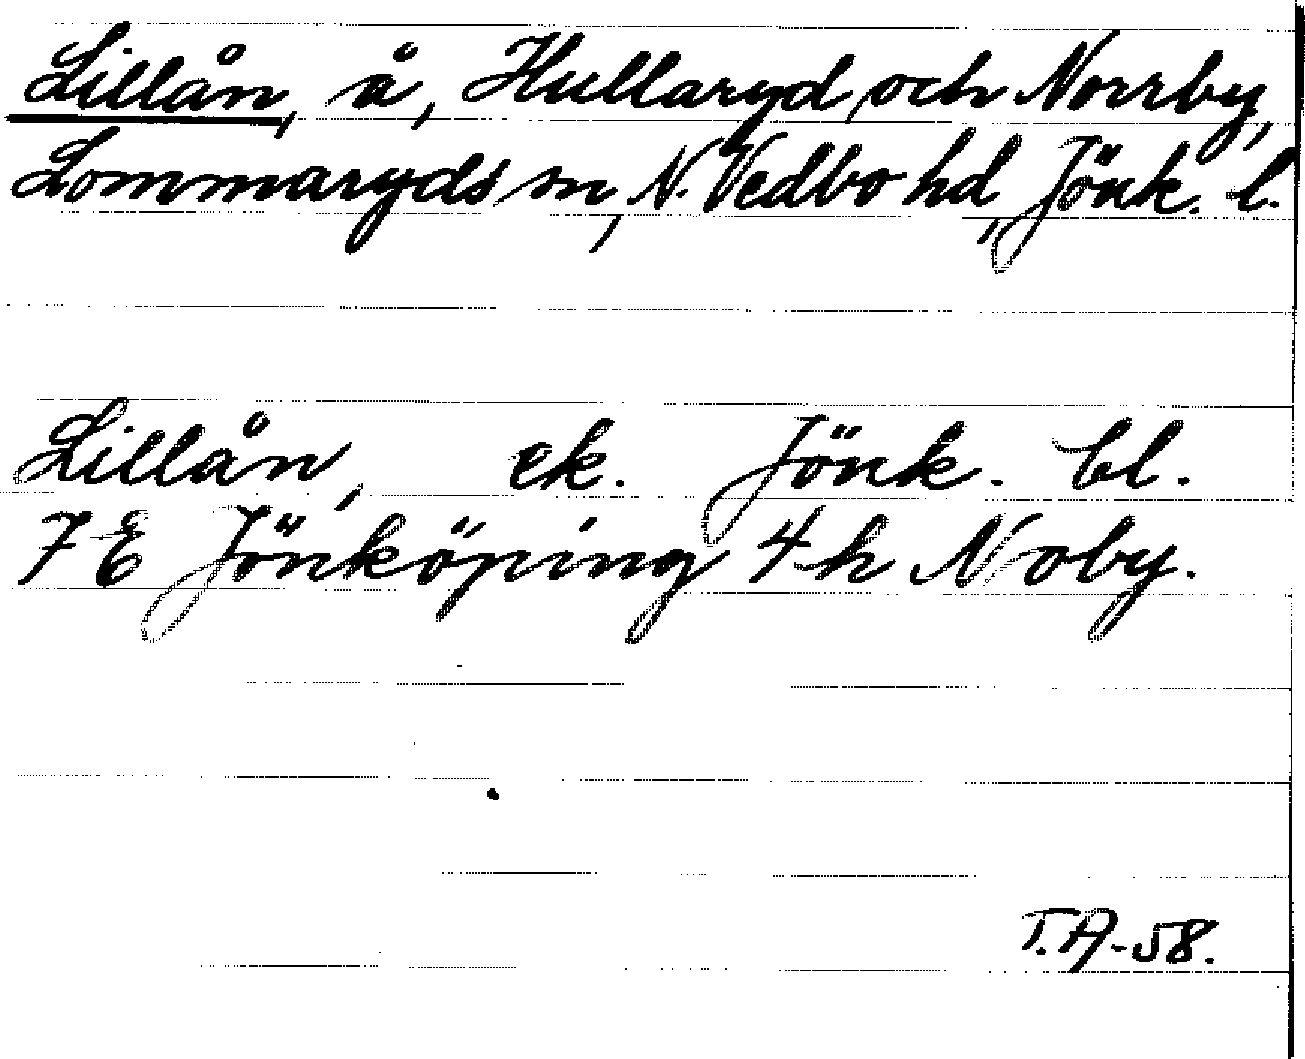 Lillån, å, Hullaryd och Norrby,
Lommaryds sn, N. Vedbo hd, Jönk. l.
Lillån, ek. Jönk. bl.
7 E Jönköping 4 h Noby.
T.A-58.